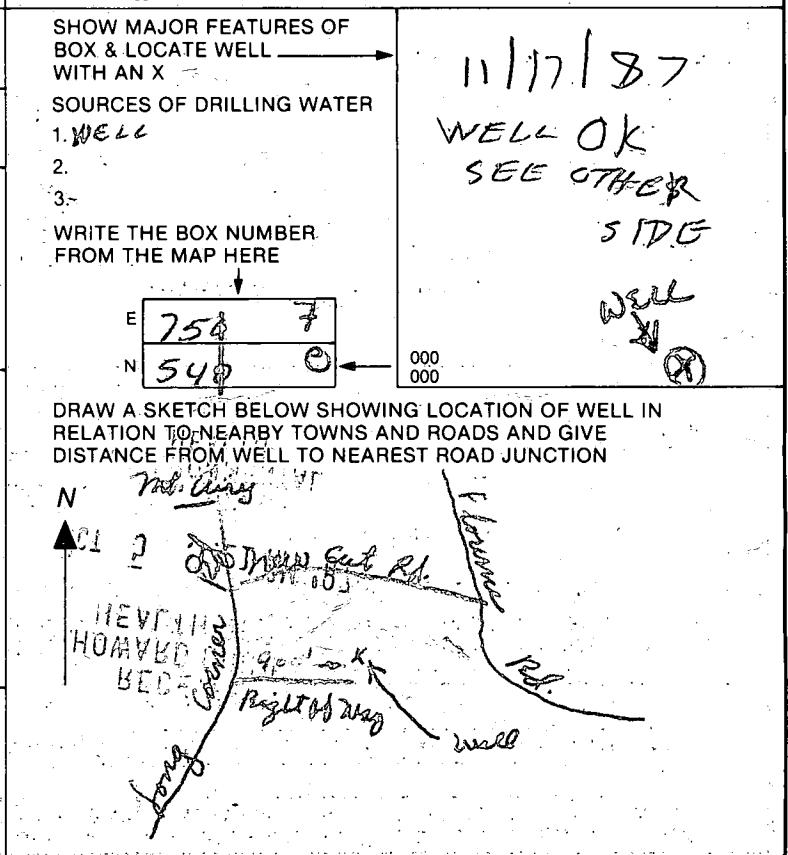 SHOW MAJOR FEATURES OF
BOX & LOCATE WELL
WITH AN X
SOURCES OF DRILLING WATER
1. WELL
2.
3.
WRITE THE BOX NUMBER
FROM THE MAP HERE
E 754 7
N 540 0
000
000
11/17/87
WELL OK
SEE OTHER
SIDE
WELL
X
DRAW A SKETCH BELOW SHOWING LOCATION OF WELL IN
RELATION TO NEARBY TOWNS AND ROADS AND GIVE
DISTANCE FROM WELL TO NEAREST ROAD JUNCTION
N
Mt. Airy
Florence Rd.
New Cut Rd.
Long Corner
Right of Way
X
Well
HEALTH
HOWARD